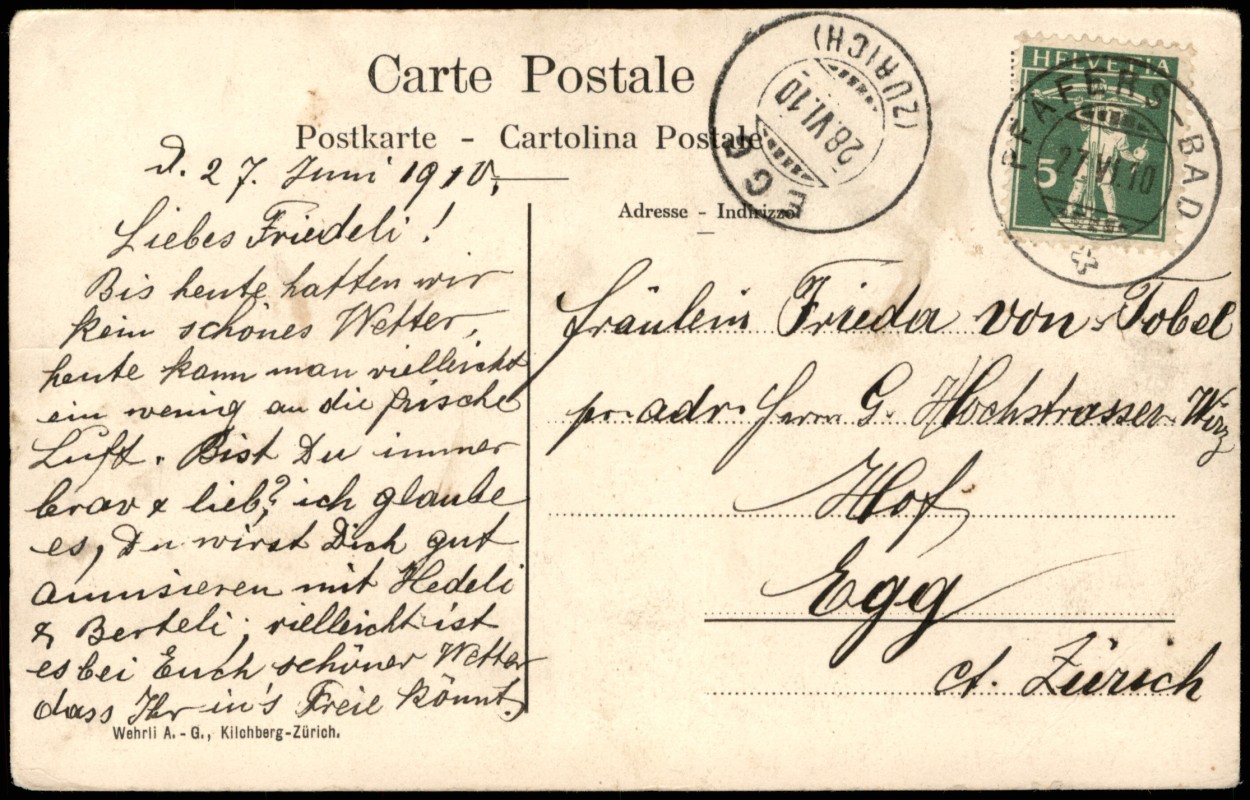 Carte Postale
Postkarte - Cartolina Postale
Adresse - Indirizzo
EGG (ZÜRICH)
28.VI.10
HELVETIA
5
PFÄFERS-BAD
27.VI.10
d. 27. Juni 1910.
Liebes Friedeli!
Bis heute hatten wir
kein schönes Wetter,
heute kann man vielleicht
ein wenig an die frische
Luft. Bist Du immer
brav & lieb? ich glaube
es, Du wirst Dich gut
amüsieren mit Hedeli
& Berteli, vielleicht ist
es bei Euch schöner Wetter
dass Ihr in's Freie könnt.
Fräulein Frieda von Tobel
pr. adr. Herrn G. Hochstrasser-Wirz
Hof
Egg
ct. Zürich
Wehrli A.-G., Kilchberg-Zürich.